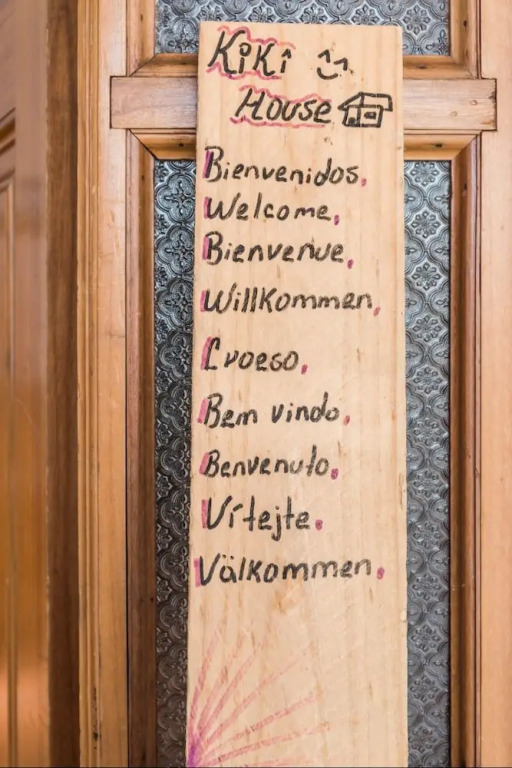 KiKi
House
Bienvenidos,
Welcome,
Bienvenue,
Willkommen,
Croeso,
Bem vindo,
Benvenuto,
Vítejte,
Välkommen,